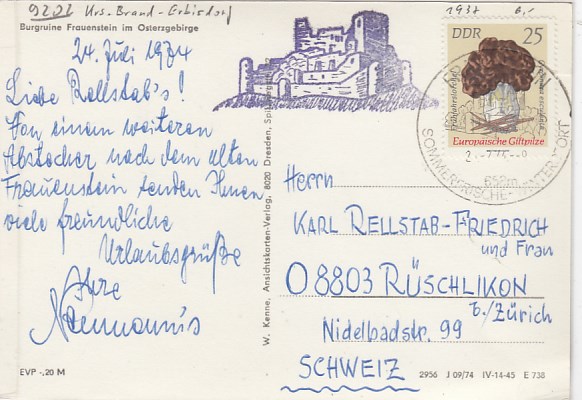 9202 Krs. Brand-Erbisdorf
1937 6,-
Burgruine Frauenstein im Osterzgebirge
24. Juli 1974
Liebe Rellstab's!
Von einem weiteren
Abstecher nach dem alten
Frauenstein senden Ihnen
viele freundliche
Urlaubsgrüße
Ihre
Naumann's
EVP -,20 M
W. Kenne, Ansichtskarten-Verlag, 8020 Dresden,
DDR 25
Frühjahrslorchel
Gyromitra esculenta
Europäische Giftpilze
652m
SOMMERFRISCHE - WINTERSPORT
Herrn
KARL RELLSTAB-FRIEDRICH
und Frau
O 8803 RÜSCHLIKON
b./Zürich
Nidelbadstr. 99
SCHWEIZ
2956 J 09/74 IV-14-45 E 738